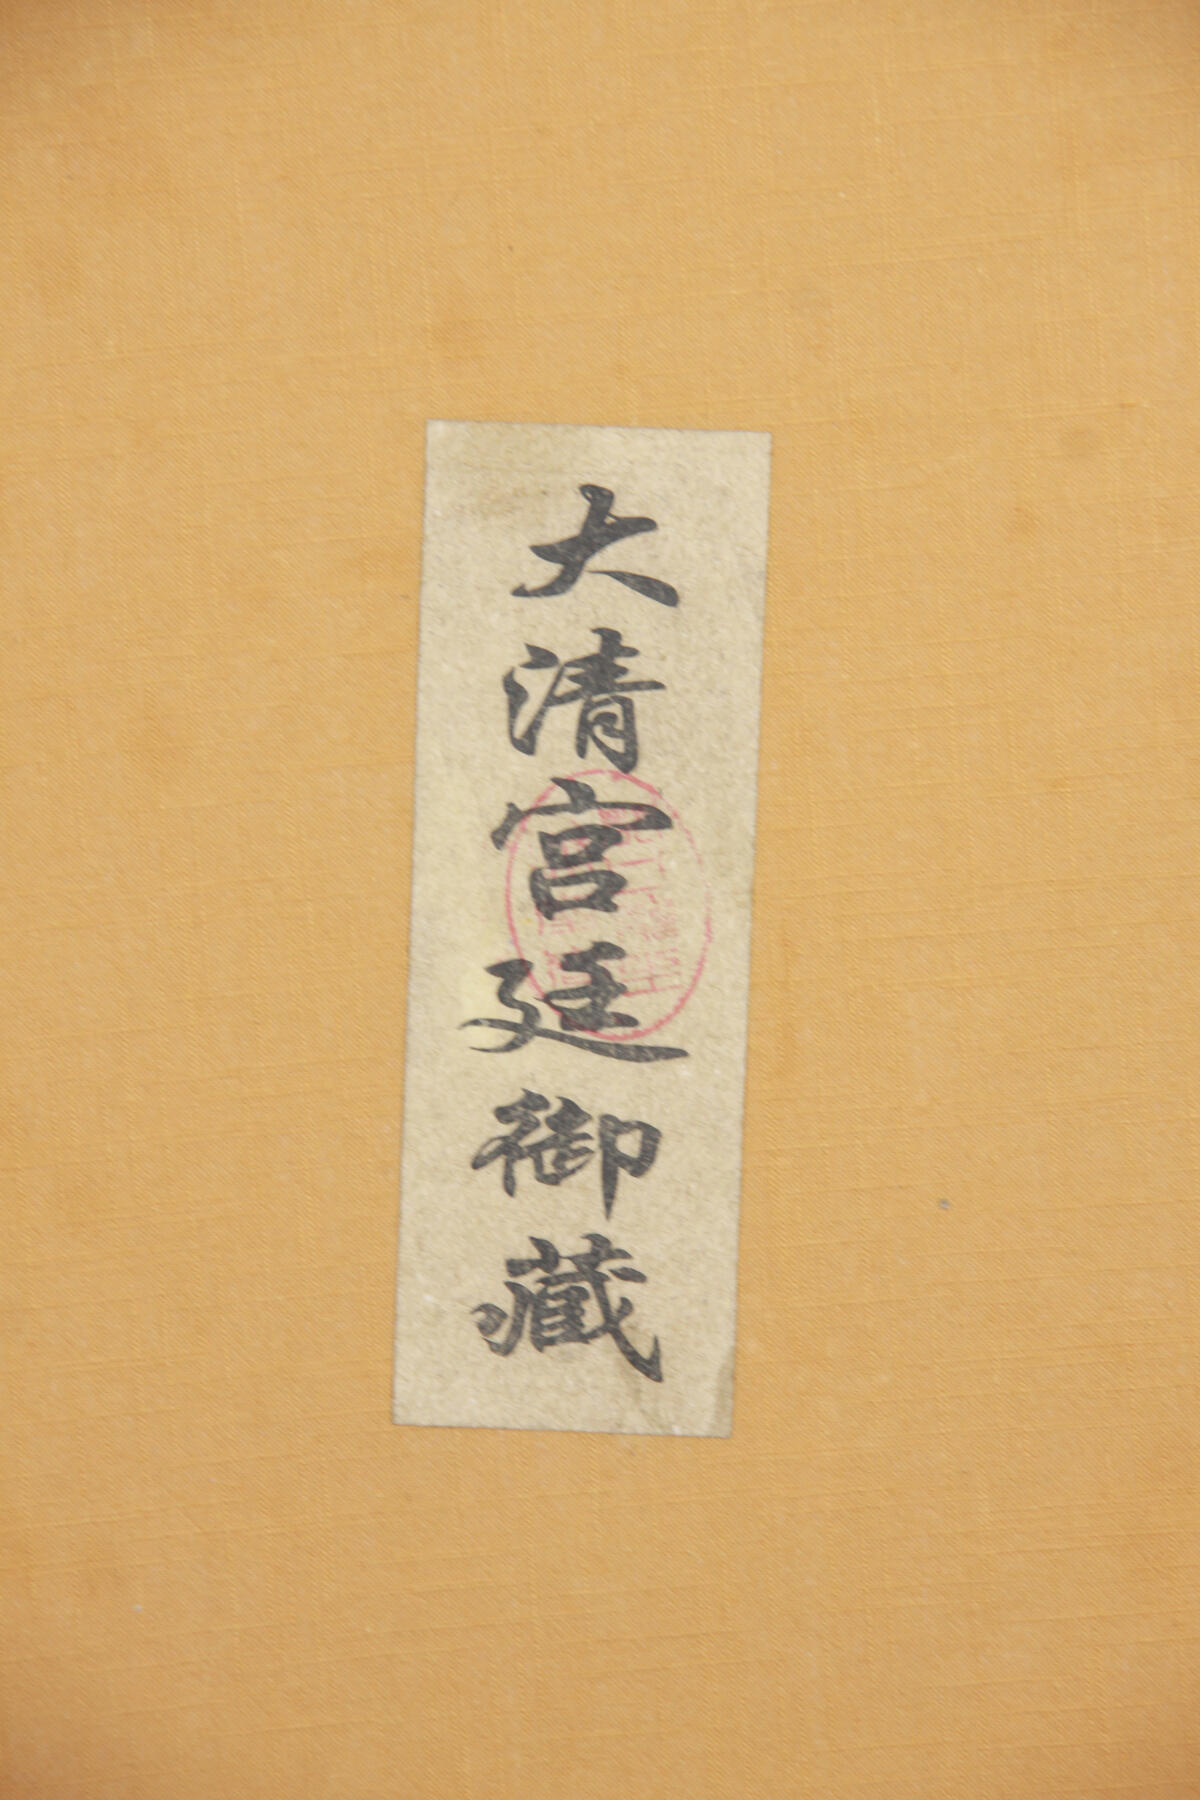 大清宫廷御藏